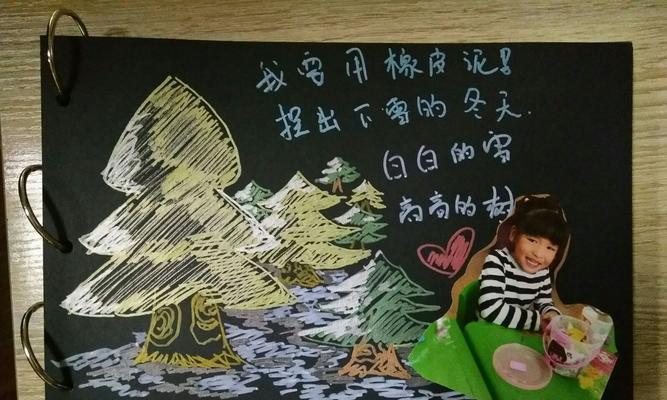 我要用橡皮泥
捏出下雪的冬天.
白白的雪
高高的树